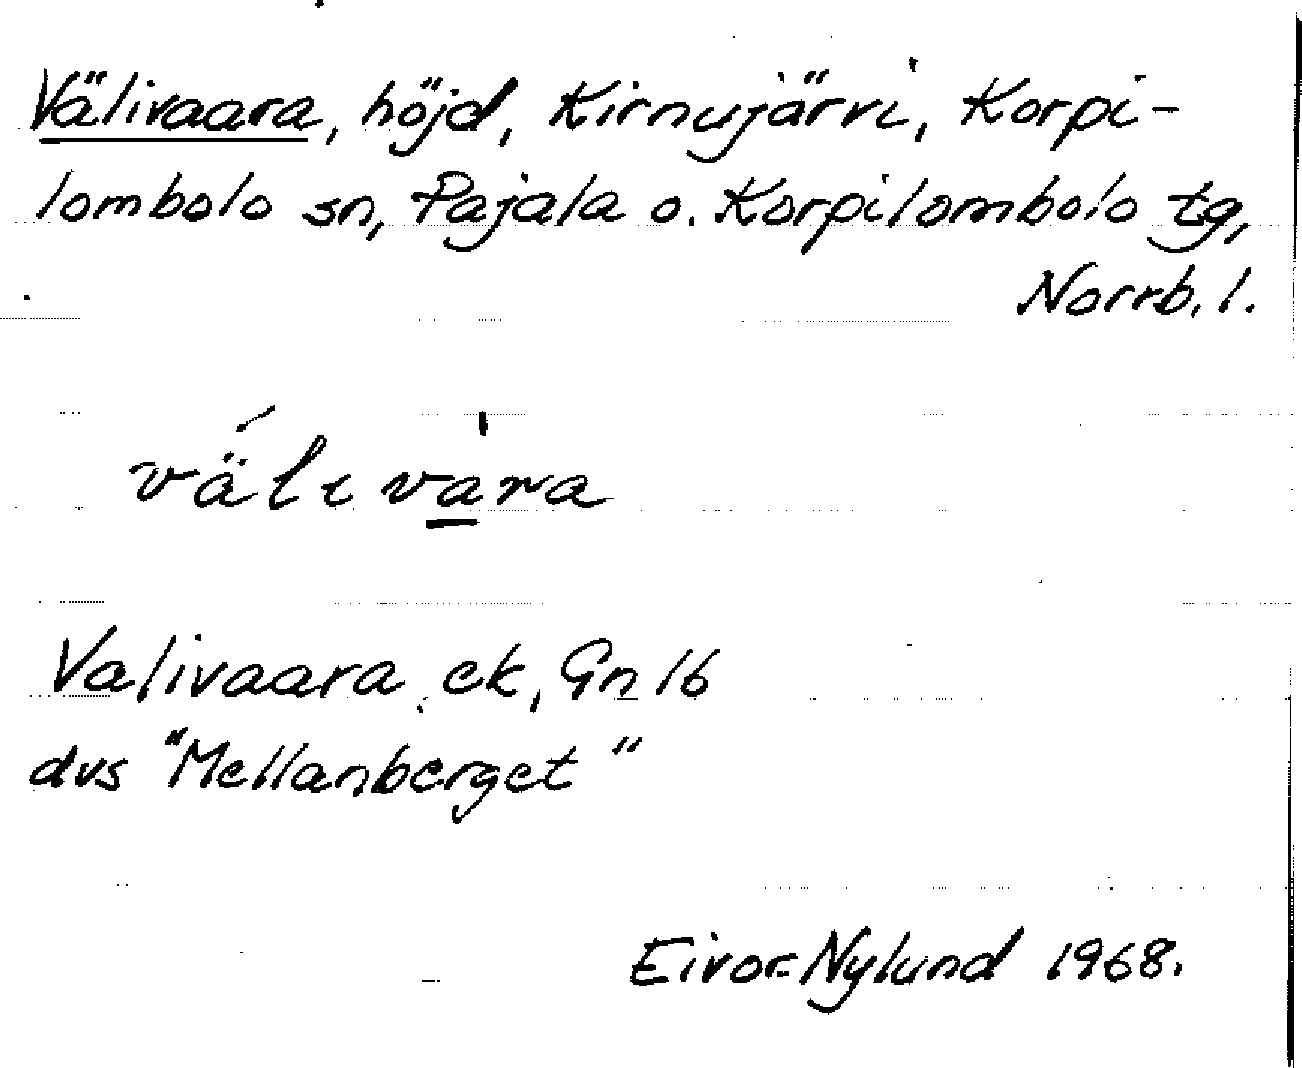 Välivaara, höjd, Kirnujärvi, Korpi-
lombolo sn, Pajala o. Korpilombolo tg,
Norrb. l.
välivàra
Valivaara ek, Gn 16
dvs "Mellanberget"
Eivor Nylund 1968.